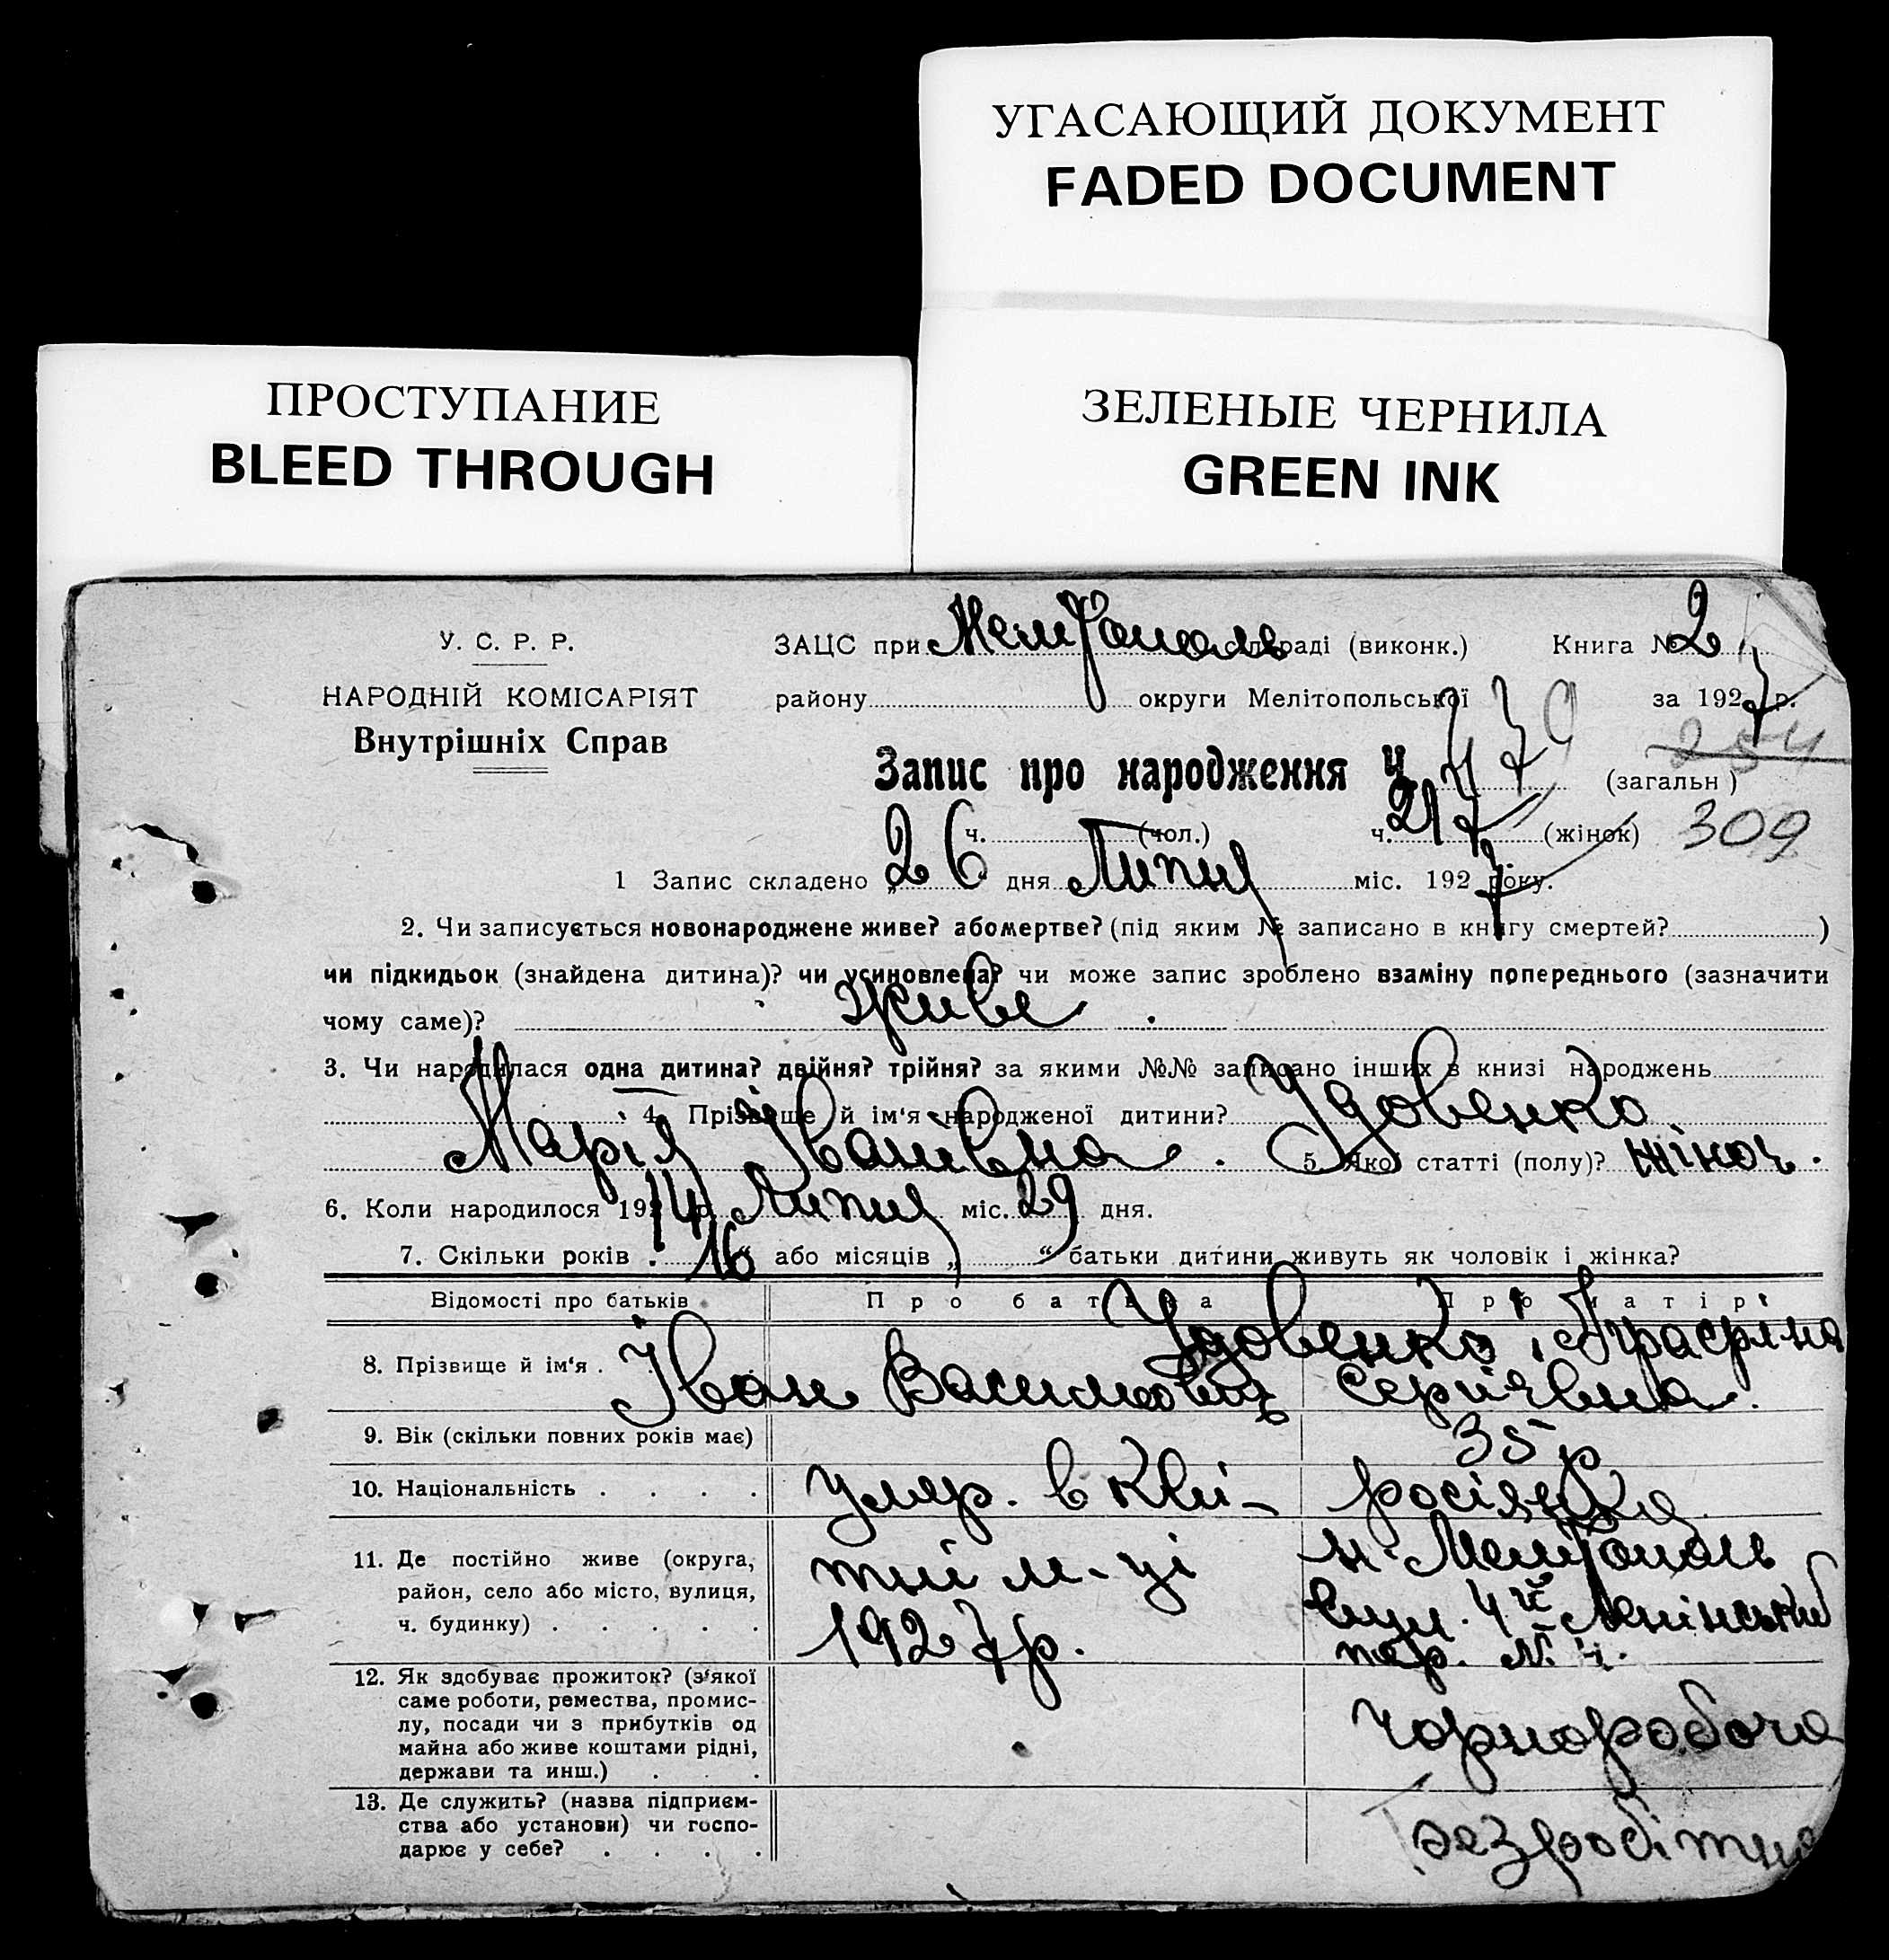 УГАСАЮЩИЙ ДОКУМЕНТ
FADED DOCUMENT
ПРОСТУПАНИЕ
BLEED THROUGH
ЗЕЛЕНЫЕ ЧЕРНИЛА
GREEN INK
У. С. Р. Р.
НАРОДНІЙ КОМІСАРІЯТ
Внутрішніх Справ
ЗАЦС при Мелітополь раді (виконк.) Книга № 2
району округи Мелітопольської за 1927 р.
254
Запис про народження ч. 479 (загальн)
ч. (чол.) ч. 217 (жінок) 309
1 Запис складено „26“ дня Липня міс. 1927 року.
2. Чи записується новонароджене живе? або мертве? (під яким № записано в книгу смертей? )
чи підкидьок (знайдена дитина)? чи усиновлена? чи може запис зроблено взаміну попереднього (зазначити
чому саме)? живе
3. Чи народилася одна дитина? двійня? трійня? за якими №№ записано інших в книзі народжень
4. Прізвище й ім'я народженої дитини? Удовенко
Марія Іванівна. 5. Якої статті (полу)? жіноч.
6. Коли народилося 192 р. 14 Липня міс. 29 дня.
7. Скільки років „16“ або місяців „ “ батьки дитини живуть як чоловік і жінка?
Відомості про батьків Про батька Про матір
8. Прізвище й ім'я . Удовенко
Іван Васильович Сергієвна.
9. Вік (скільки повних років має) 35 р
10. Національність . . . . умер. в Кві- росіянка
11. Де постійно живе (округа, тні м-ці м. Мелітополь
район, село або місто, вулиця, вул. 4й Ленінський
ч. будинку) . . . . . 1927 р. пер. № 4.
12. Як здобуває прожиток? (з'якої
саме роботи, ремества, промис-
лу, посади чи з прибутків од
майна або живе коштами рідні,
держави та инш.) . . . чорноробоча
13. Де служить? (назва підприєм-
ства або установи) чи госпо-
дарює у себе? . . . . безробітна